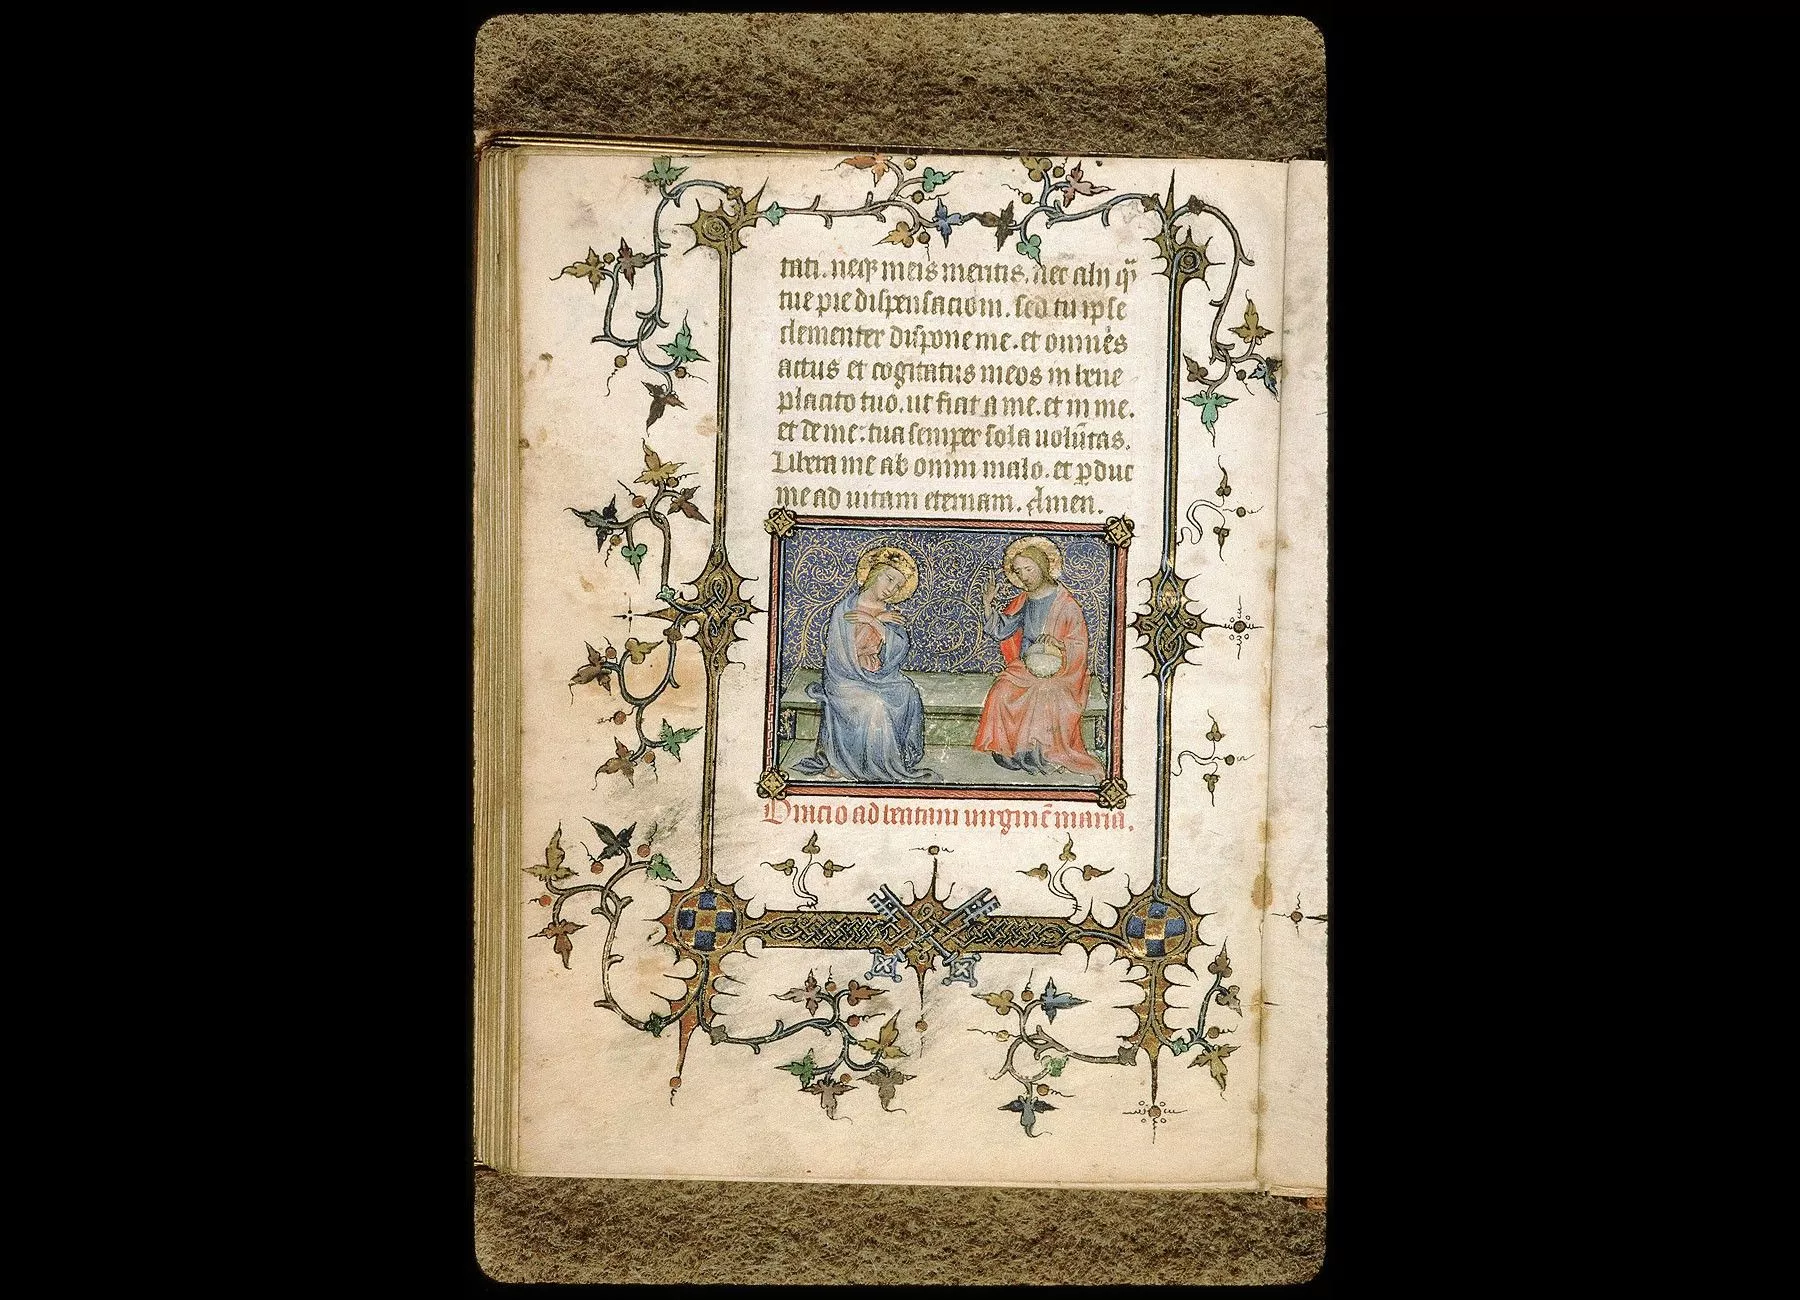 tati. neq; meis meritis. nec alii qͣ
tue pie dispensaciom. sed tu ipse
clementer dispone me. et omnes
actus et cogitatus meos in bene
placito tuo. ut fiat a me. et in me.
et de me. tua semper sola uolūtas.
Libera me ab omni malo. et ꝑduc
me ad uitam eternam. Amen.
Oracio ad beatam uirginē maria.